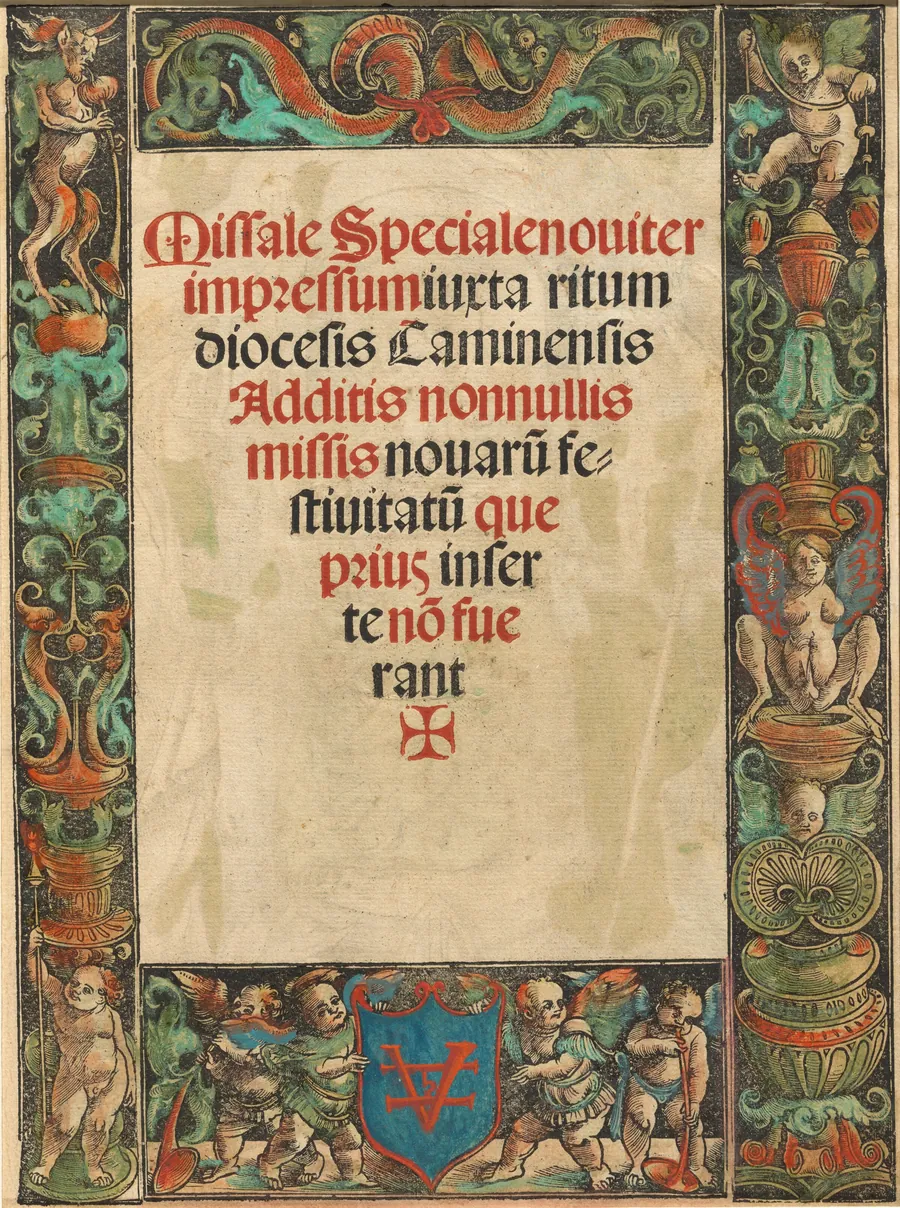 Miſſale Speciale nouiter
impreſſum iuxta ritum
dioceſis Caminenſis
Additis nonnullis
miſſis nouarū fe⸗
ſtiuitatū que
priꝰ inſer
te nō fue
rant